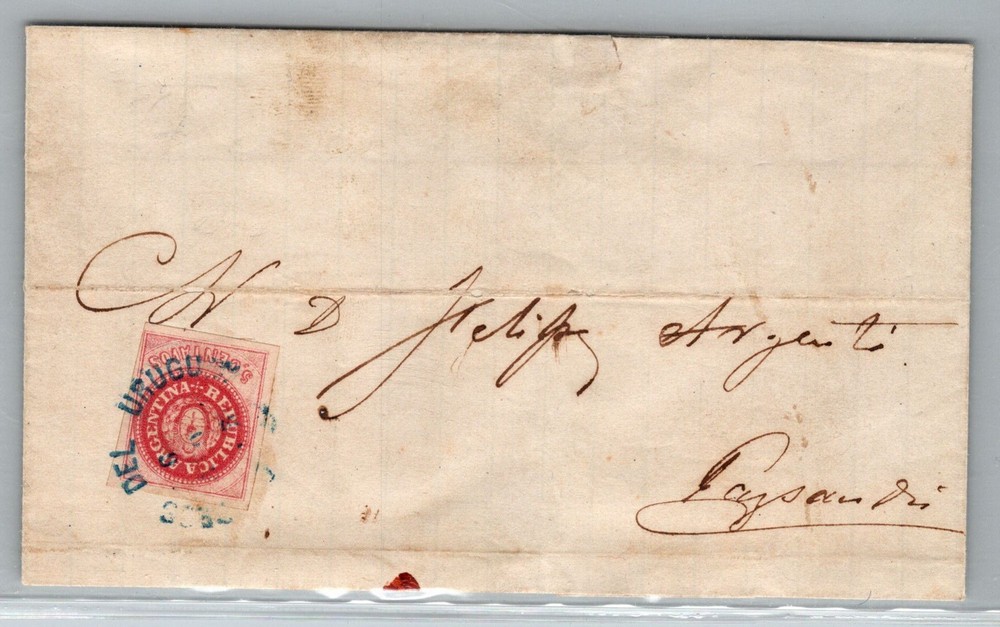 D Felipe Argenti
Paysandú
5. CENTAVOS
REPUBLICA ARGENTINA
DEL URUGU